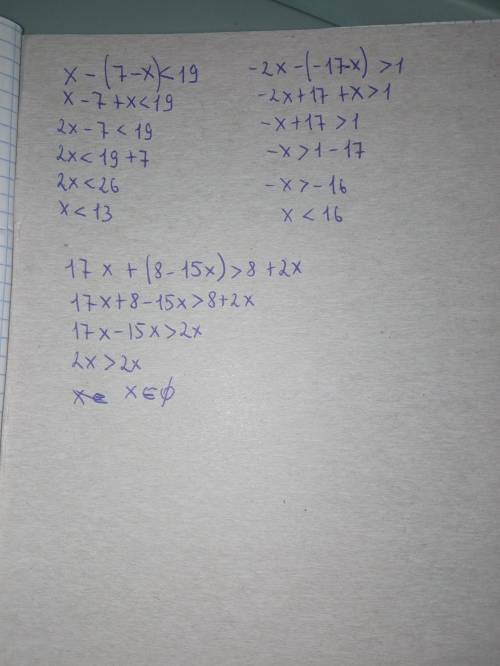 x - (7-x)<19
x - 7 + x < 19
2x - 7 < 19
2x < 19 + 7
2x < 26
x < 13
-2x - (-17-x) > 1
-2x + 17 + x > 1
-x + 17 > 1
-x > 1 - 17
-x > -16
x < 16
17x + (8 - 15x) > 8 + 2x
17x + 8 - 15x > 8 + 2x
17x - 15x > 2x
2x > 2x
x∈ x ∈ ∅